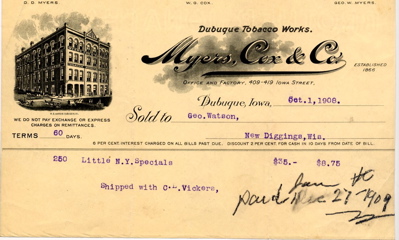 D. D. MYERS. W. S. COX. GEO. W. MYERS.
Dubuque Tobacco Works.
Myers, Cox & Co.
ESTABLISHED
1866
OFFICE AND FACTORY, 409-419 IOWA STREET.
Dubuque, Iowa, Oct.1,1908.
WE DO NOT PAY EXCHANGE OR EXPRESS
CHARGES ON REMITTANCES.
Sold to Geo.Watson,
TERMS 60 days. New Diggings,Wis.
6 PER CENT INTEREST CHARGED ON ALL BILLS PAST DUE. DISCOUNT 2 PER CENT. FOR CASH IN 10 DAYS FROM DATE OF BILL.
250 Little N.Y.Specials $35.- $8.75
Shipped with C.L.Vickers,
paid Dec 27-1909